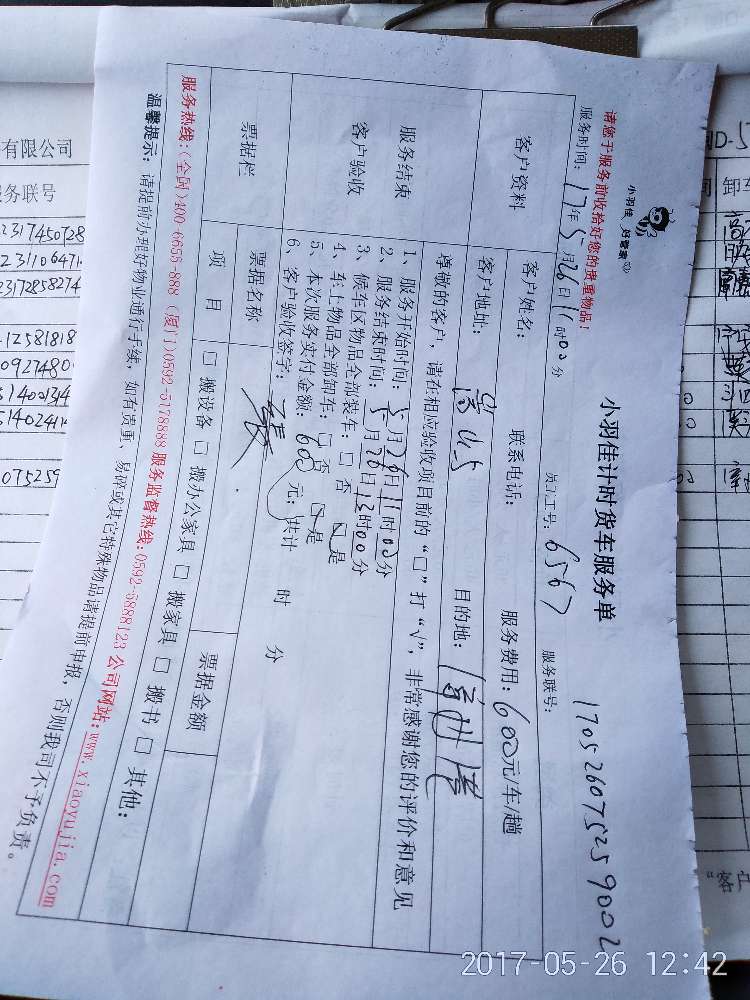 小羽佳 好管家
小羽佳计时货车服务单
请您于服务前收拾好您的贵重物品!
服务时间: 17年5月26日11时00分
员工工号: 6567
服务联号: 170526075259002
客户资料
客户姓名:
联系电话:
服务费用: 600元/车/趟
客户地址:
目的地:
尊敬的客户, 请在相应验收项目前的“□”打“√”, 非常感谢您的评价和意见
服务结束
客户验收
1、服务开始时间: 5月26日11时00分
2、服务结束时间: 5月26日13时00分
3、候车区物品全部装车: □ 否 ☑ 是
4、车上物品全部卸车: □ 否 ☑ 是
5、本次服务实付金额: 600元; 共计 时 分
6、客户验收签字:
票据栏
票据名称
票据金额
项 目
□ 搬设备 □ 搬办公家具 □ 搬家具 □ 搬书 □ 其他:
服务热线:(全国)400-6655-888 (厦门)0592-5178888 服务监督热线:0592-5888123 公司网站:www.xiaoyujia.com
温馨提示: 请提前办理好物业通行手续, 如有贵重、易碎或其它特殊物品请提前申报, 否则我司不予负责。
有限公司
服务联号
卸车
“客户
2017-05-26 12:42